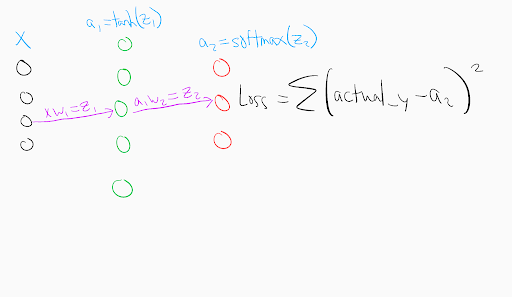 X
a₁=tanh(z₁)
a₂=softmax(z₂)
xw₁=z₁
a₁w₂=z₂
Loss = Σ(actual_y-a₂)²